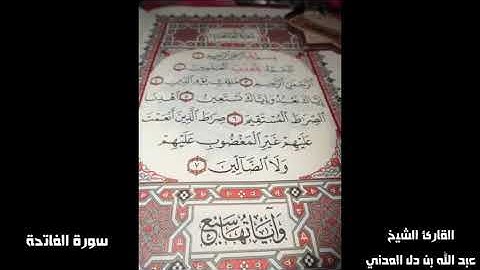 بسم الله الرحمن الرحيم ١
الحمد لله رب العلمين ٢
الرحمن الرحيم ٣ ملك يوم الدين ٤
إياك نعبد وإياك نستعين ٥ اهدنا
الصراط المستقيم ٦ صراط الذين أنعمت
عليهم غير المغضوب عليهم
ولا الضالين ٧
وآياتها سبع
سورة الفاتحة
القارئ الشيخ
عبد الله بن دلا المدني